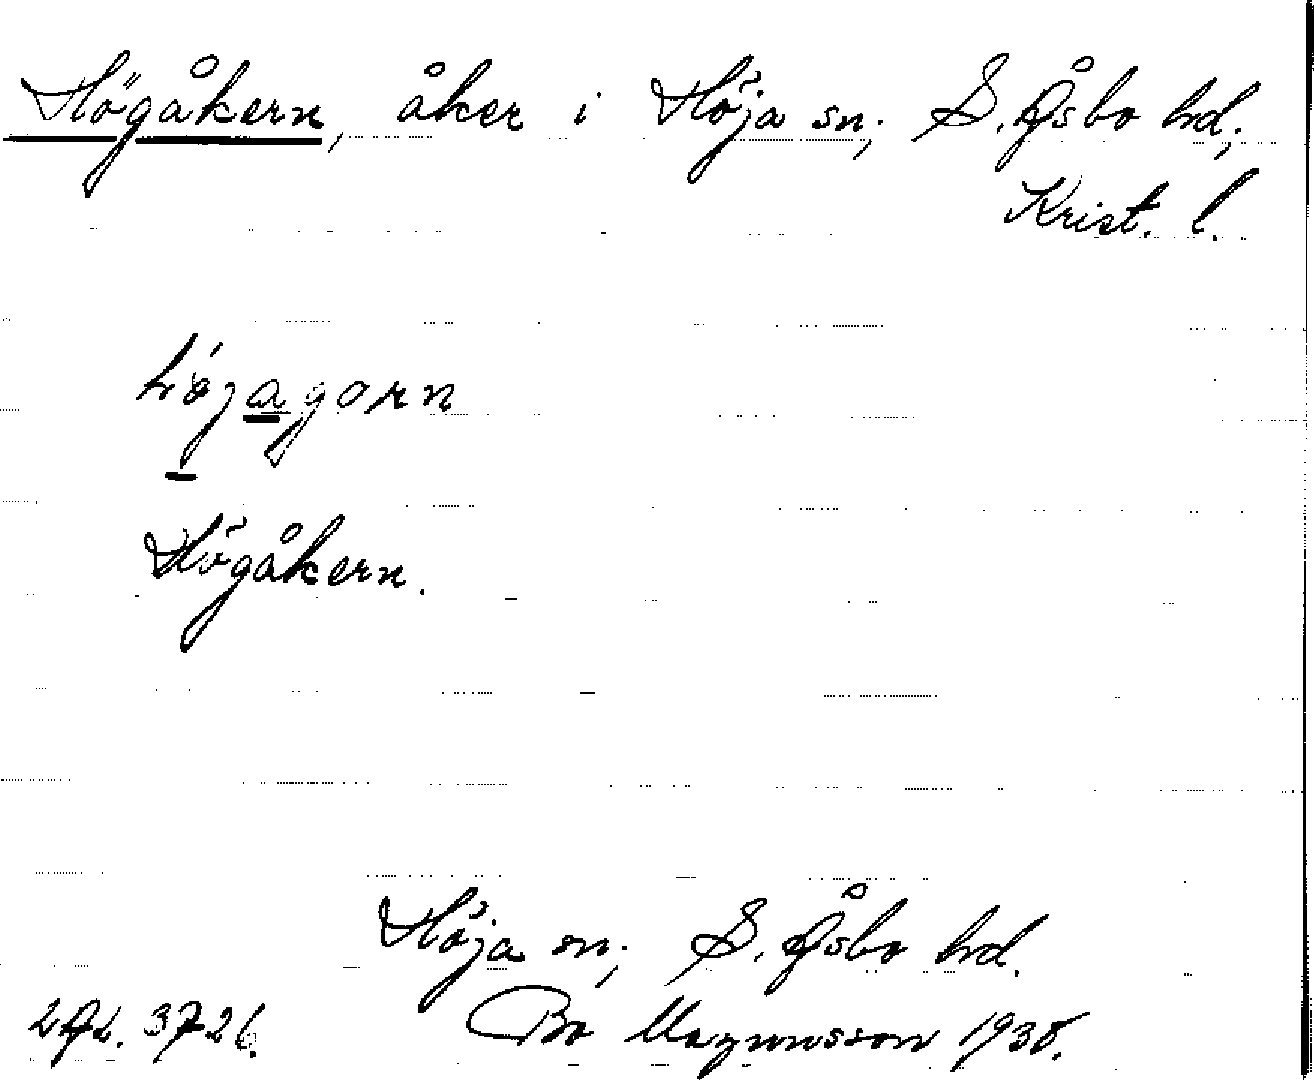 Högåkern, åker i Höja sn; S. Åsbo hd;
Krist. l.
højagorn
Högåkern.
Höja sn; S. Åsbo hd.
LAL. 3726. Bo Magnusson 1938.